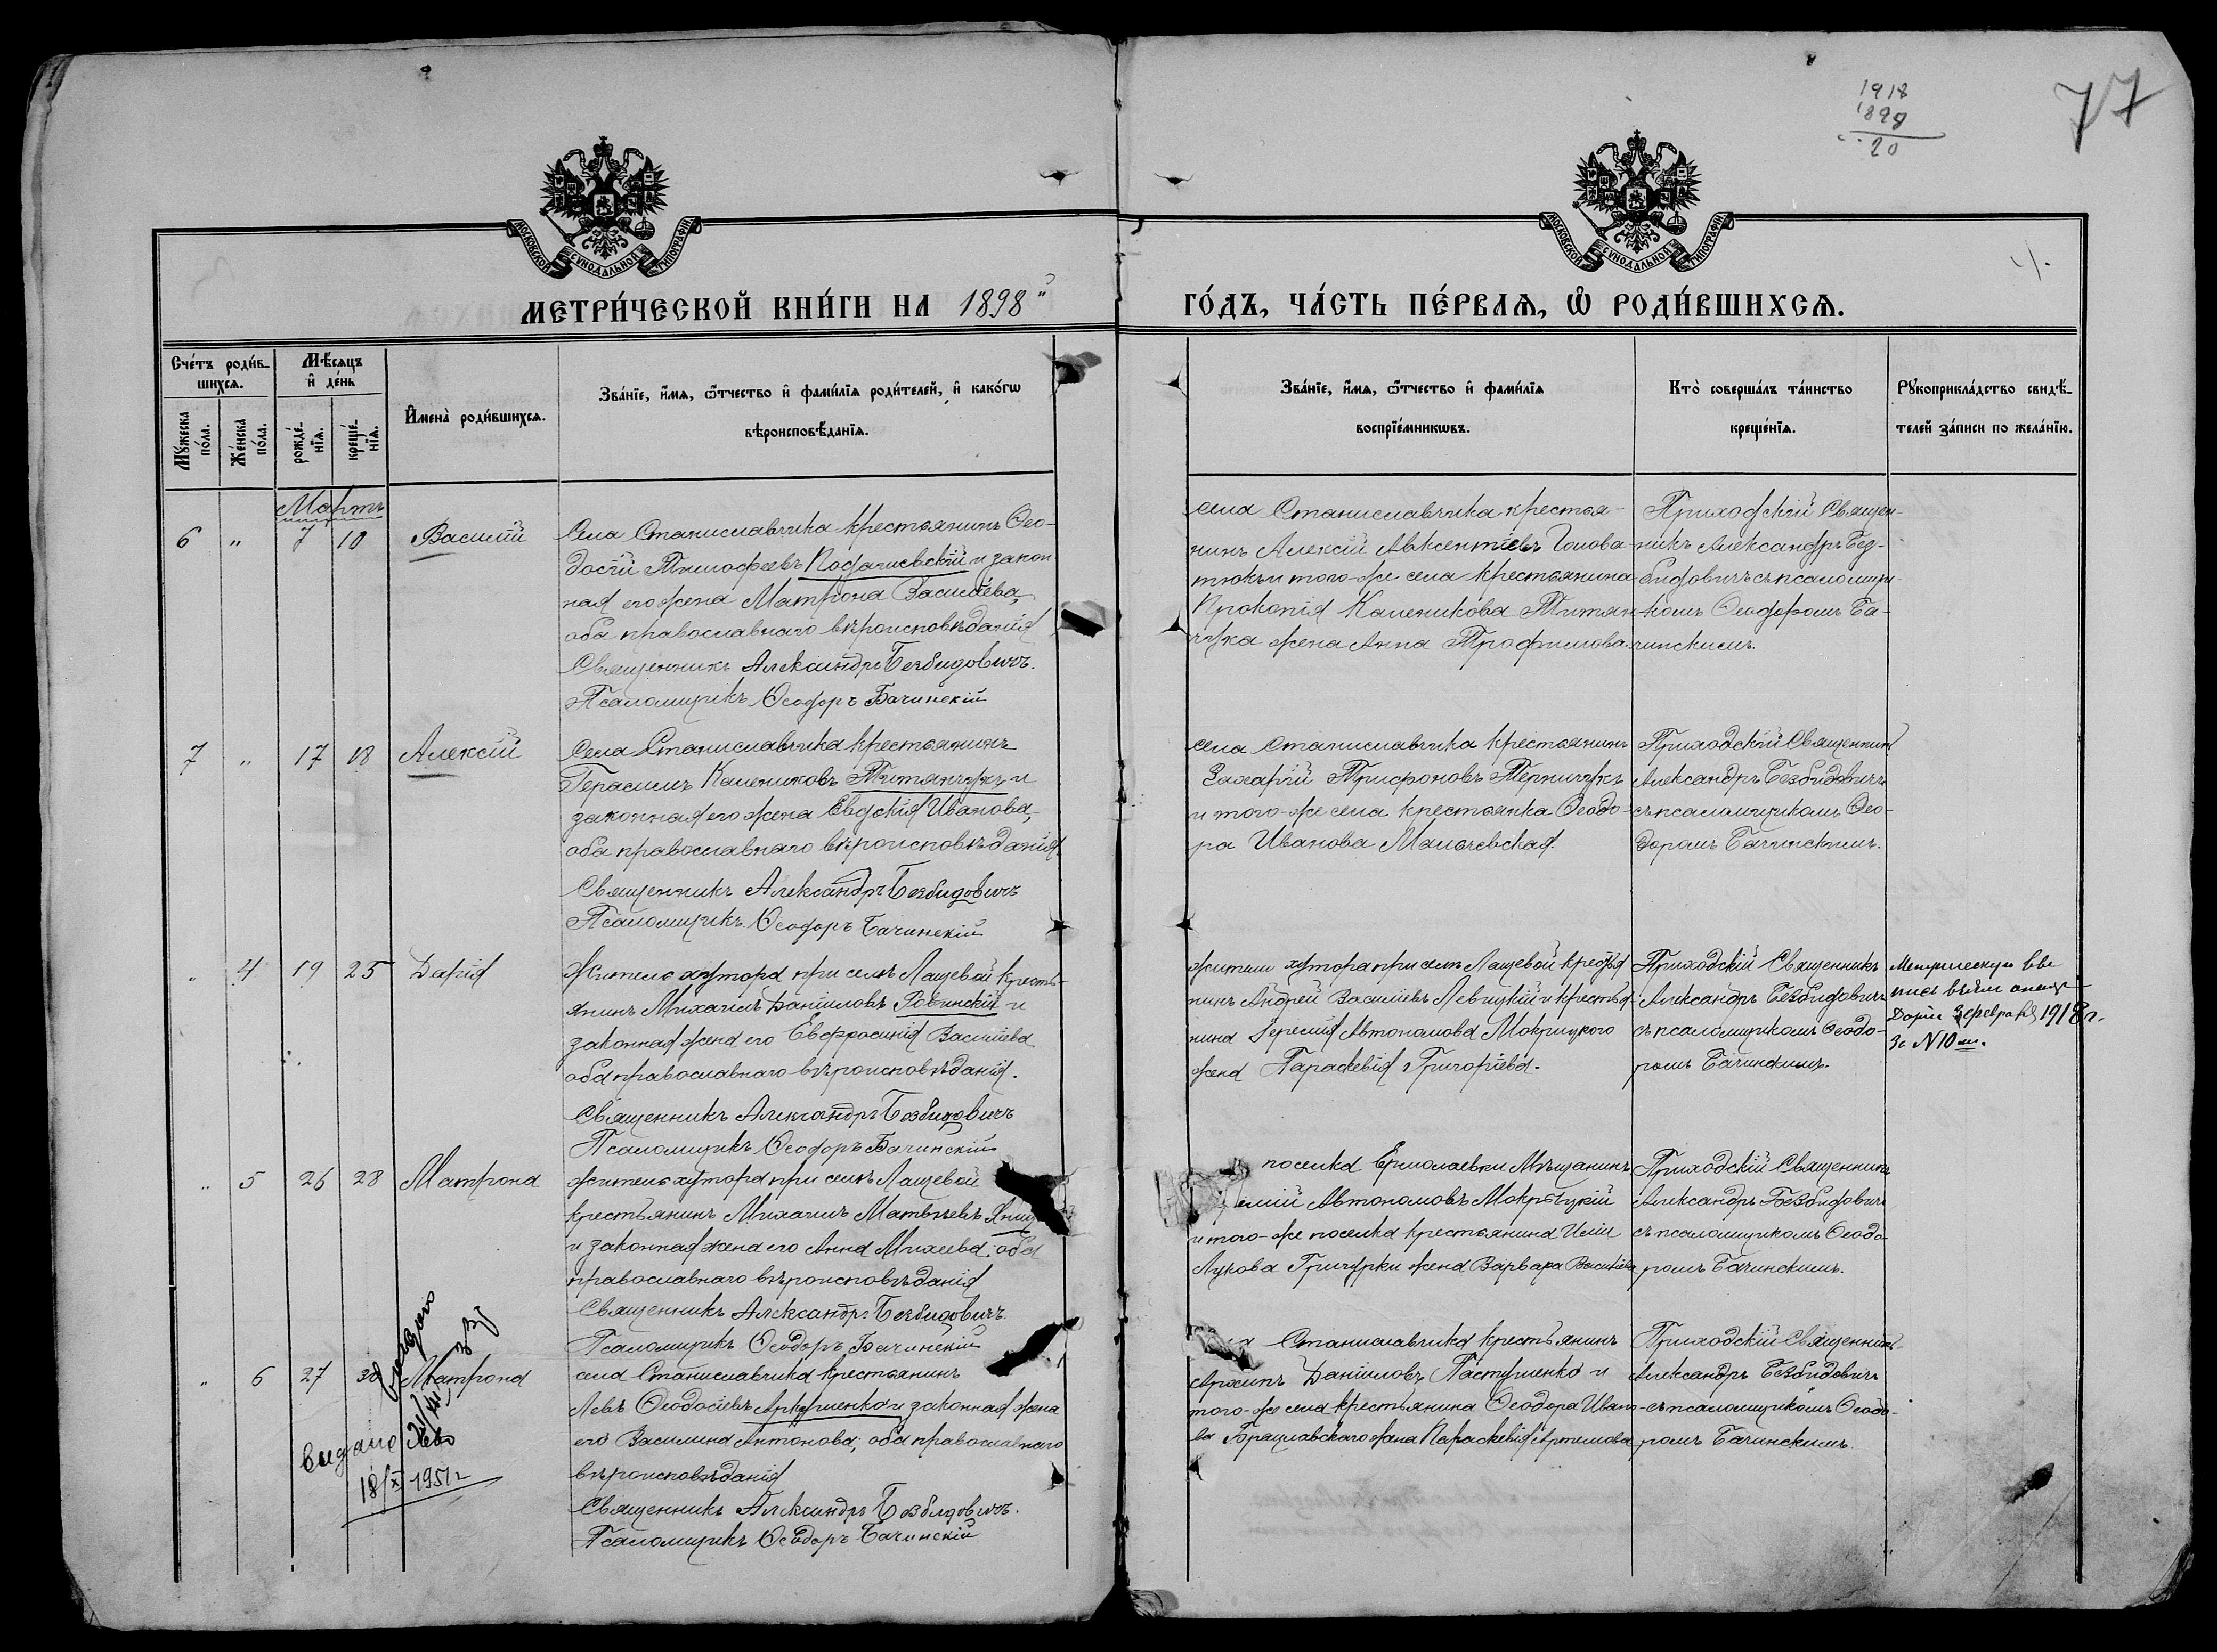 1918
1898
20
77
МОСКОВСКОЙ СУНОДАЛЬНОЙ ТИПОГРАФІИ
МОСКОВСКОЙ СУНОДАЛЬНОЙ ТИПОГРАФІИ
МЕТРИ́ЧЕСКОЙ КНИ́ГИ НА 1898
ГО́ДЪ, ЧА́СТЬ ПЕ́РВАѦ, Ѡ РОДИ́ВШИХСѦ.
Сче́тъ роди́в-
шихсѧ.
Мꙋжеска
по́ла.
Же́нска
по́ла.
Мѣ́сѧцъ
и҆ де́нь
рожде́-
нїѧ.
креще́-
нїѧ.
И҆мена̀ роди́вшихсѧ.
Зва́нїе, и҆́мѧ, ѻ҆́тчество и҆ фами́лїѧ роди́телей, и҆ како́гѡ
вѣроисповѣ́данїѧ.
Зва́нїе, и҆́мѧ, ѻ҆́тчество и҆ фами́лїѧ
воспрїе́мникѡвъ.
Кто̀ соверша́лъ та́инство
креще́нїѧ.
Рꙋкоприкла́дство свидѣ́-
телей за́писи по жела́нїю.
Мартъ
6 " 7 10 Василій
Села Станиславчика крестьянинъ Ѳео-
досій Тимофеевъ Подагиевскій и закон
ная его жена Матрона Васильева,
оба православнаго вѣроисповѣданія
Священникъ Александръ Безбидовичъ.
Псаломщикъ Ѳеодоръ Бачинскій
села Станиславчика крестья-
нинъ Алексій Авксентіевъ Голова-
тюкъ и того-же села крестьянина
Прокопія Каленикова Титян-
чука жена Анна Трофимова.
Приходскій Священ-
никъ Александръ Без-
бидовичъ съ псаломщи-
комъ Ѳеодоромъ Ба-
чинскимъ.
7 " 17 18 Алексій
Села Станиславчика крестьянинъ
Герасимъ Калениковъ Титянчукъ и
законная его жена Евдокія Иванова,
оба православнаго вѣроисповѣданія.
Священникъ Александръ Безбидовичъ
Псаломщикъ Ѳеодоръ Бачинскій
села Станиславчика крестьянинъ
Захарій Трифоновъ
и того-же села крестьянка Ѳеодо-
ра Иванова
Приходскій Священникъ
Александръ Безбидовичъ
съ псаломщикомъ Ѳео-
доромъ Бачинскимъ.
" 4 19 25 Дарія
Житель хутора при селѣ Лащевой кресть-
янинъ Михаилъ Даніиловъ и
законная жена его Евфросинія Васильева
оба православнаго вѣроисповѣданія.
Священникъ Александръ Безбидовичъ
Псаломщикъ Ѳеодоръ Бачинскій
жители хутора при селѣ Лащевой крестья
нинъ Андрей Василіевъ Левицкій и крестья-
нина Автономова Мокрицкого
жена Параскевія Григоріева.
Приходскій Священникъ
Александръ Безбидовичъ
съ псаломщикомъ Ѳеодо-
ромъ Бачинскимъ.
Метрическую вы
пись
Дарія февраля 1918 г.
За N 10
" 5 26 28 Матрона
житель хутора при селѣ Лащевой
крестьянинъ Михаилъ Матвѣевъ
и законная жена его Анна Михеева; оба
православнаго вѣроисповѣданія
Священникъ Александръ Безбидовичъ
Псаломщикъ Ѳеодоръ Бачинскій
поселка Ермолаевки Мѣщанинъ
Автономовъ Мокрицкій
и того-же поселка крестьянина
Лукова жена Варвара
Приходскій Священникъ
Александръ Безбидовичъ
съ псаломщикомъ Ѳеодо-
ромъ Бачинскимъ.
" 6 27 28 Матрона
села Станиславчика крестьянинъ
Левъ Ѳеодосіевъ и законная жена
его Василина Антонова; оба православнаго
вѣроисповѣданія
Священникъ Александръ Безбидовичъ.
Псаломщикъ Ѳеодоръ Бачинскій
Станиславчика крестьянинъ
Даніиловъ Пастушенко и
того-же села крестьянина Ѳеодора Ивано-
ва Брацлавскаго жена Параскевія Артемова
Приходскій Священникъ
Александръ Безбидовичъ
съ псаломщикомъ Ѳеодо-
ромъ Бачинскимъ.
видано
18/XI 1951 г